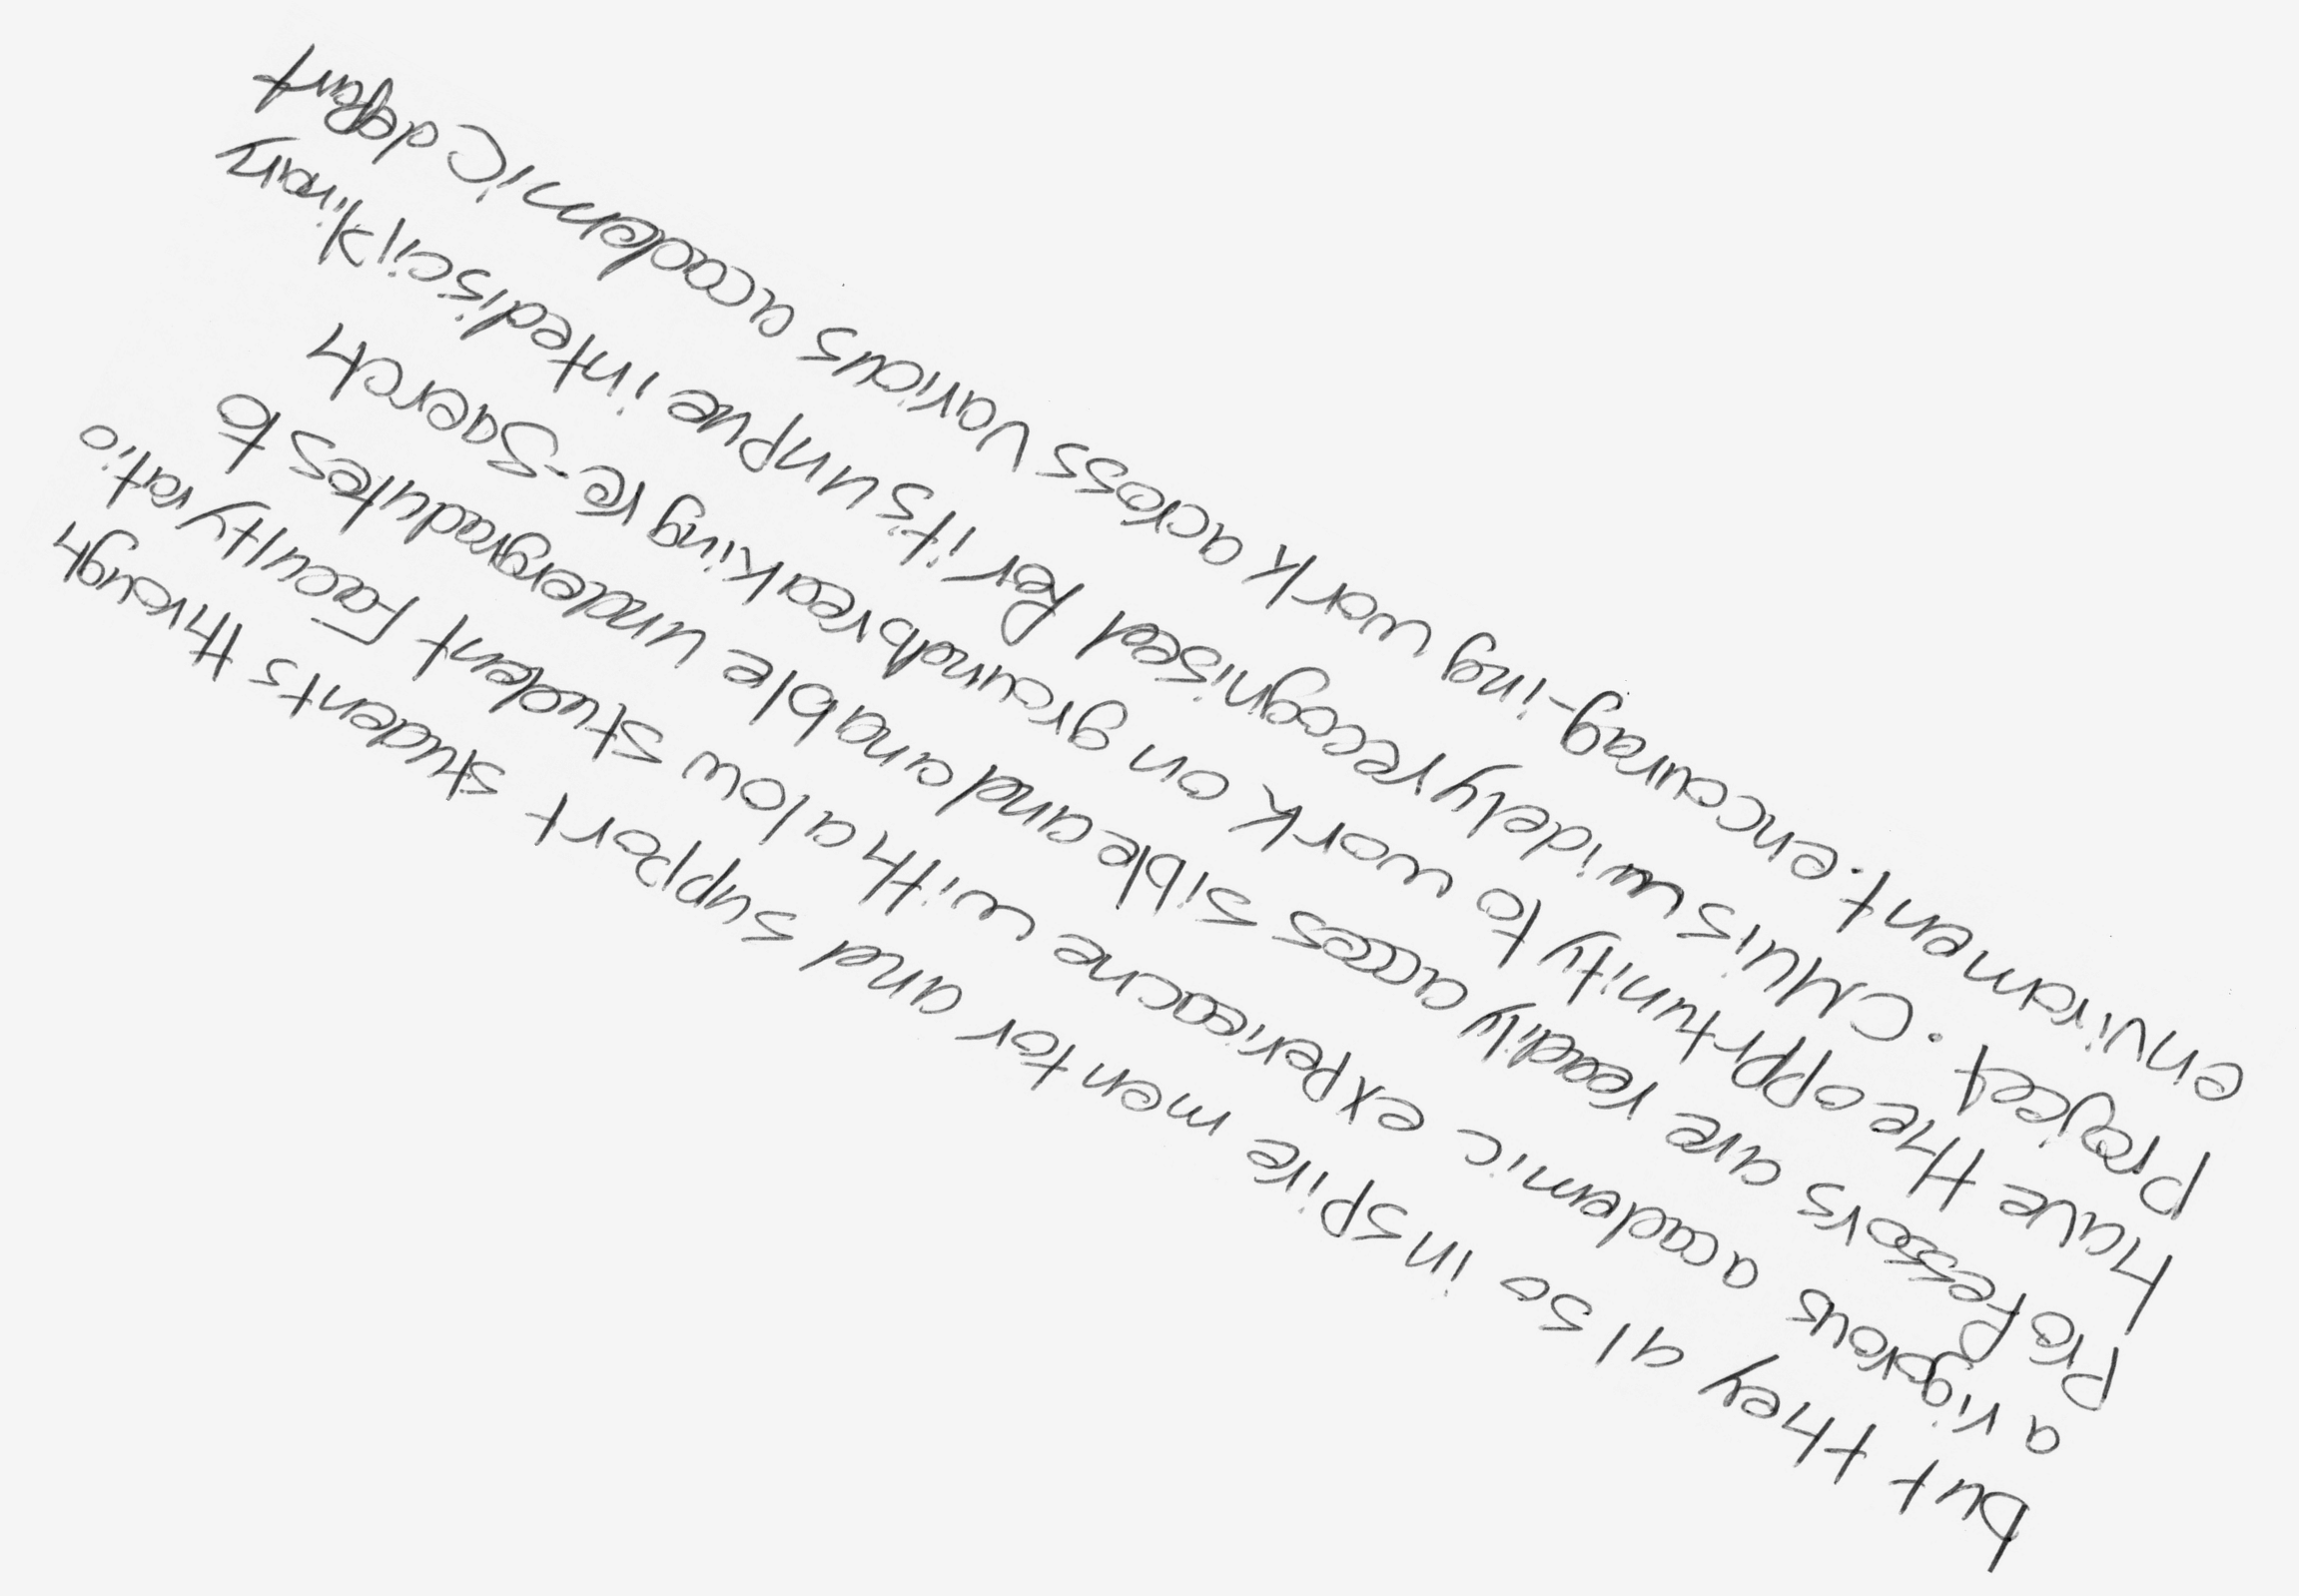 but they also inspire mentor and support students through
a rigorous academic experieacne with a low student Faculty ratio
Professors are readily acces sible and anable undergradutes to
have the opprtunity to work on groundbreaking re-Saerch
project. CMU is widely recognised for its unpue intedisciplinary
enviroment. encourag-ing work across various academic depart